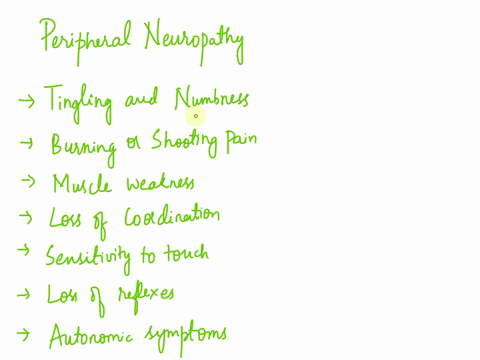 Peripheral Neuropathy
→ Tingling and Numbness
→ Burning or Shooting Pain
→ Muscle weakness
→ Loss of Coordination
→ Sensitivity to touch
→ Loss of reflexes
→ Autonomic symptoms